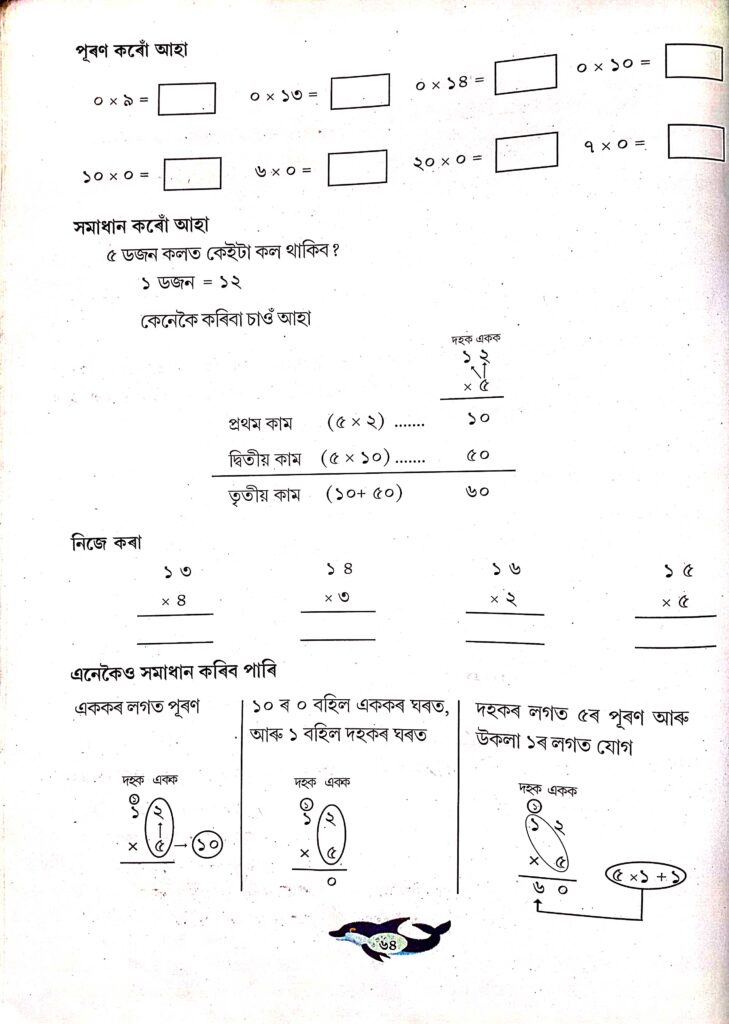 পূৰণ কৰোঁ আহা
০ × ৯ = ০ × ১৩ = ০ × ১৪ = ০ × ১০ =
১০ × ০ = ৬ × ০ = ২০ × ০ = ৭ × ০ =
সমাধান কৰোঁ আহা
৫ ডজন কলত কেইটা কল থাকিব?
১ ডজন = ১২
কেনেকৈ কৰিবা চাওঁ আহা
দহক একক
১ ২
× ৫
প্ৰথম কাম (৫ × ২) ....... ১০
দ্বিতীয় কাম (৫ × ১০) ....... ৫০
তৃতীয় কাম (১০+ ৫০) ৬০
নিজে কৰা
১ ৩ ১ ৪ ১ ৬ ১ ৫
× ৪ × ৩ × ২ × ৫
এনেকৈও সমাধান কৰিব পাৰি
এককৰ লগত পূৰণ
দহক একক
১
১ ২
× ৫ → ১০
১০ ৰ ০ বহিল এককৰ ঘৰত,
আৰু ১ বহিল দহকৰ ঘৰত
দহক একক
১
১ ২
× ৫
০
দহকৰ লগত ৫ৰ পূৰণ আৰু
উকলা ১ৰ লগত যোগ
দহক একক
১
১ ২
× ৫
৬ ০
৫ ×১ + ১
৬৪